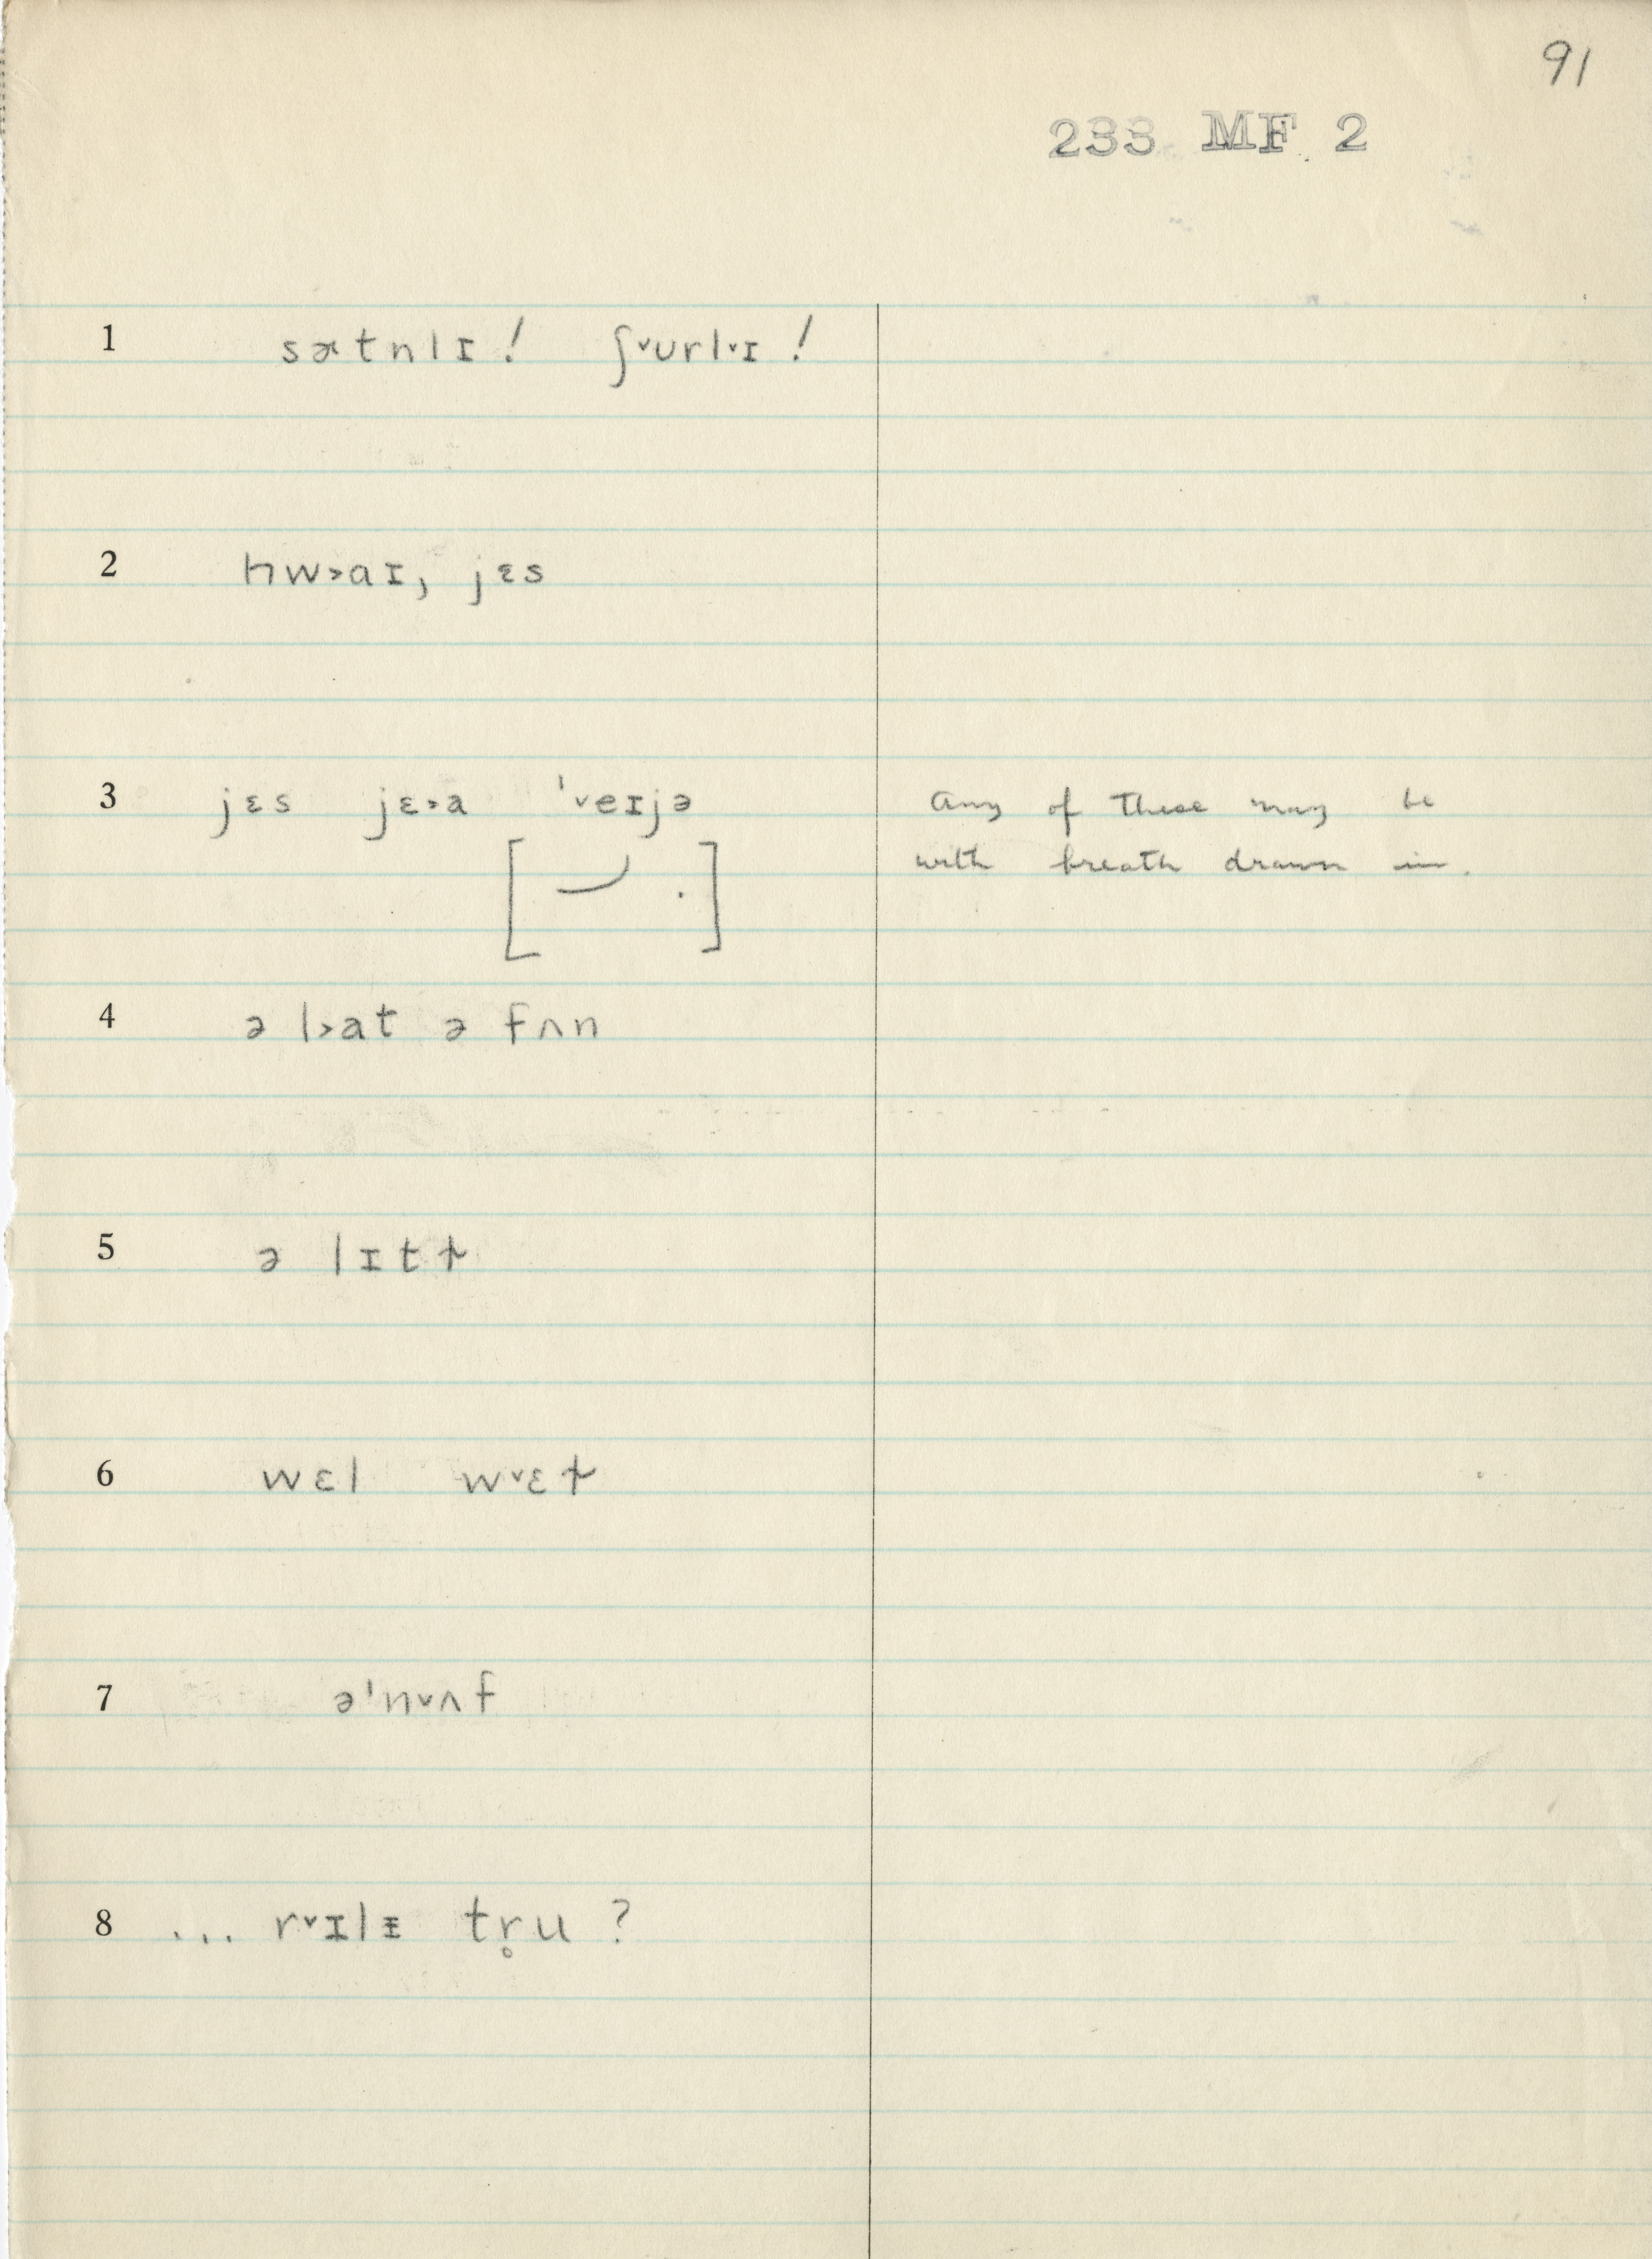 91
233 MF 2
1 sætnlɪ! ʃ˅ʊrl˅ɪ!
2 hw˃aɪ, jɛs
3 jɛs jɛ˃a ˈ˅eɪjə Any of these may be
[ . ] with breath drawn in.
4 ə l˃at ə fʌn
5 ə lɪtɫ
6 wɛl w˅ɛɫ
7 əˈn˅ʌf
8 ... r˅ɪlᵻ tr̥u?